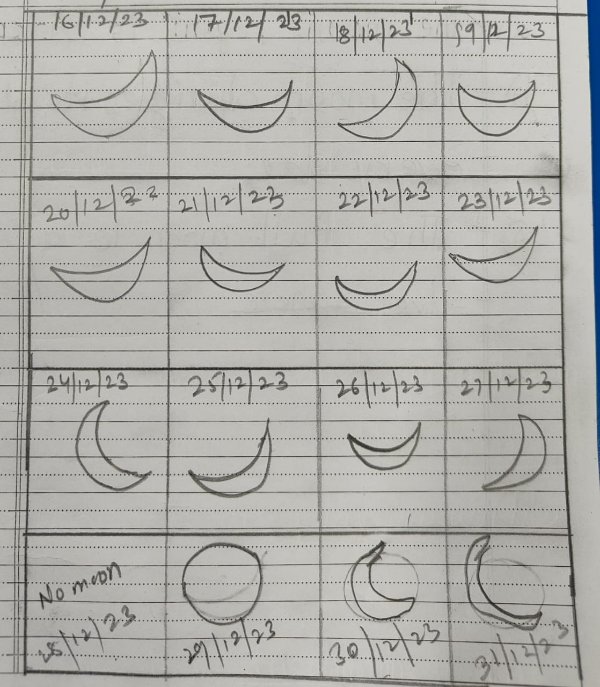 16/12/23
17/12/23
18/12/23
19/12/23
20/12/22
21/12/23
22/12/23
23/12/23
24/12/23
25/12/23
26/12/23
27/12/23
No moon
28/12/23
29/12/23
30/12/23
31/12/23